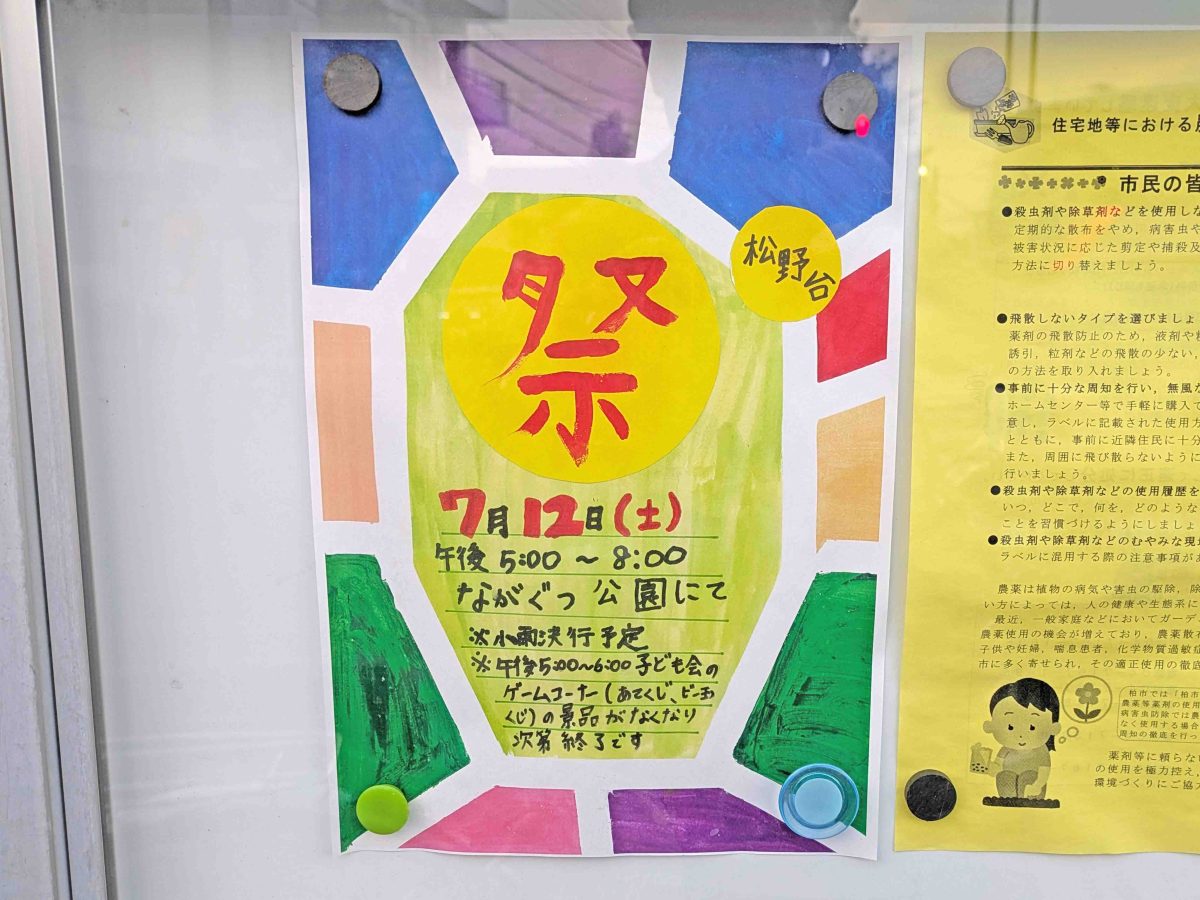 祭
松野台
7月12日(土)
午後 5:00 ～ 8:00
ながぐつ 公園にて
※小雨決行予定
※午後5:00～6:00 子ども会の
ゲームコーナー(あてくじ、ビー玉
くじ)の景品がなくなり
次第終了です
住宅地等における
市民の皆
●殺虫剤や除草剤などを使用しな
定期的な散布をやめ，病害虫や
被害状況に応じた剪定や捕殺及
方法に切り替えましょう。
●飛散しないタイプを選びましょ
薬剤の飛散防止のため，液剤や
誘引，粒剤などの飛散の少ない，
の方法を取り入れましょう。
●事前に十分な周知を行い，無風な
ホームセンター等で手軽に購入で
意し，ラベルに記載された使用方
とともに，事前に近隣住民に十分
また，周囲に飛び散らないように
行いましょう。
●殺虫剤や除草剤などの使用履歴を
いつ，どこで，何を，どのような
ことを習慣づけるようにしましょ
●殺虫剤や除草剤などのむやみな現
ラベルに混用する際の注意事項があ
農薬は植物の病気や害虫の駆除，除
い方によっては，人の健康や生態系に
最近，一般家庭などにおいてガーデ
農薬使用の機会が増えており，農薬散
子供や妊婦，喘息患者，化学物質過敏症
市に多く寄せられ，その適正使用の徹底
柏市では「柏市
農薬等薬剤の使用
病害虫防除では農
なく使用する場合
周知の徹底を行っ
薬剤等に頼らな
の使用を極力控え
環境づくりにご協力